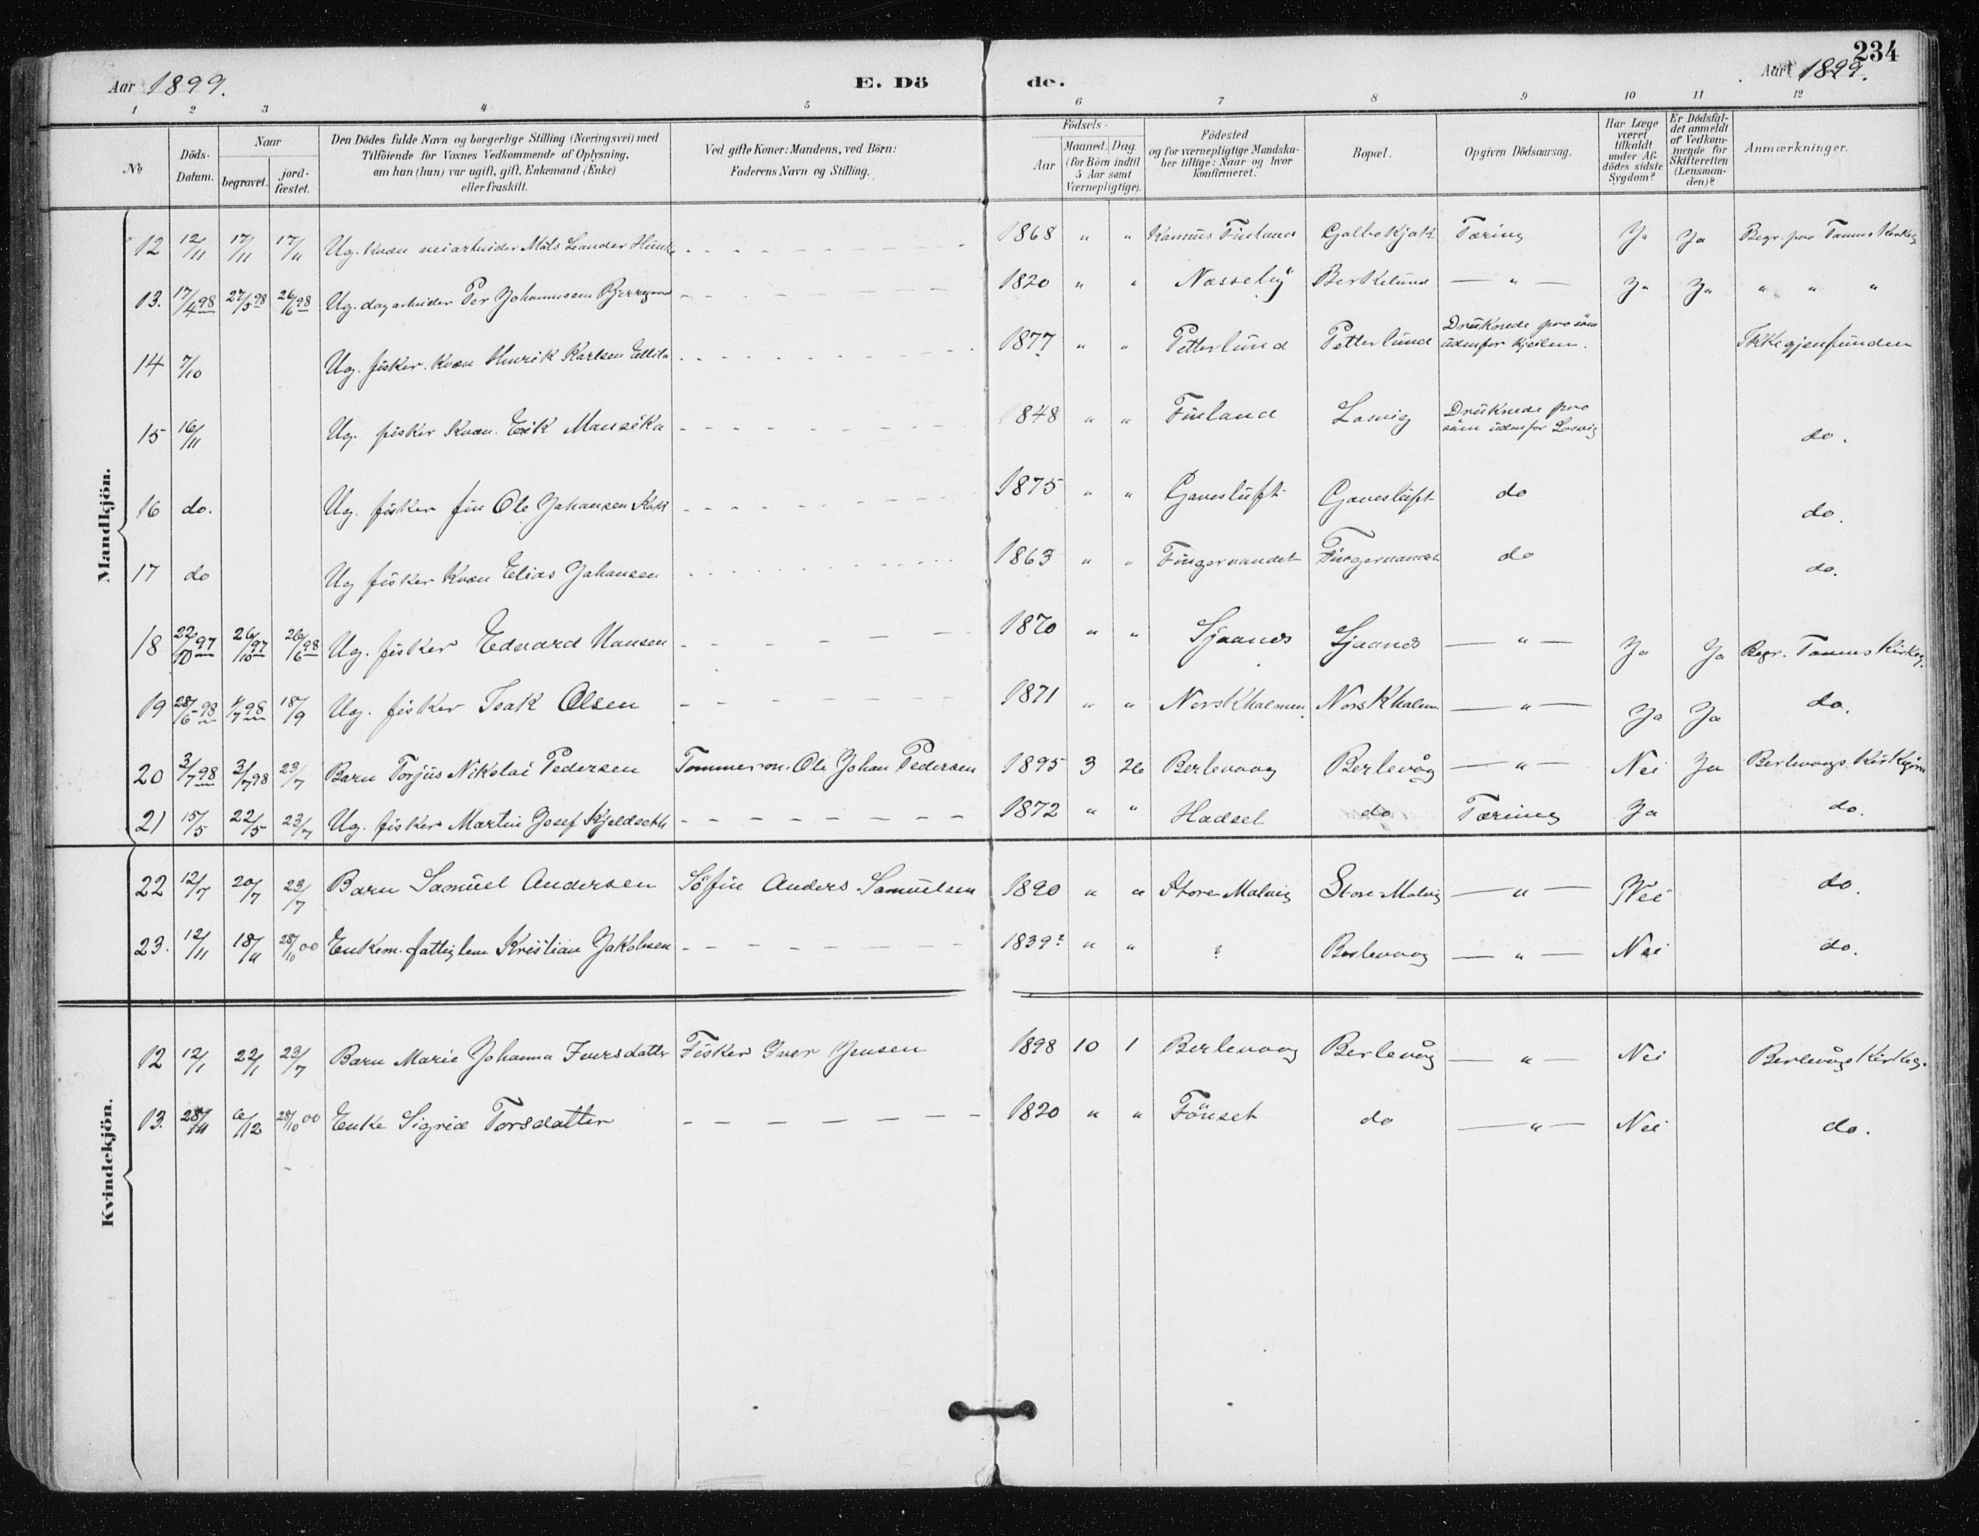 234
Aar 1899. E. Dö de. Aar 1899.
1 2 3 4 5 6 7 8 9 10 11 12
No
Döds-Datum.
Naar
begravet.
jordfæstet.
Den Dödes fulde Navn og borgerlige Stilling (Næringsvei) med
Tilföiende for Voxnes Vedkommende af Oplysning,
om han (hun) var ugift, gift, Enkemand (Enke)
eller fraskilt.
Ved gifte Koner: Mandens, ved Börn:
Faderens Navn og Stilling.
Födsels-
Aar
Maaned. Dag.
(for Börn indtil
5 Aar samt
Værnepligtige).
Födested
og for værnepligtige Mandskaber tillige: Naar og hvor
konfirmeret.
Bopæl.
Opgiven Dödsaarsag.
Har Læge
været
tilkaldt
under Afdödes sidste
Sygdom?
Er Dödsfaldet anmeldt
af Vedkommende for
Skifteretten
(Lensmanden)?
Anmærkninger.
Mandkjön.
12 12/11 17/11 17/11 Ug. Kvæn Mats Leander - - - 1868 " " Finland Tæring Ja Ja Begr. paa Tanns Kirkeg
13. 17/4 98 27/5 98 26/6 98 Ug. dagarbeider Per Johannesen - - - 1820 " " Nesseby Berkelund — " — Ja Ja " " "
14 7/10 Ug. fisker. Kvæn Henrik Karlsen - - - 1877 " " Petterlund Petterlund Druknede paa söen udenfor Ikke gjenfunden
15 16/11 Ug. fisker Kvæn. Erik Mansika - - - 1848 " " Finland Losvig Druknede paa söen udenfor Losvig do.
16 do. Ug. fisker fin Ole Johansen - - - 1875 " " Gavesluft Gavesluft do do.
17 do Ug fisker Kvæn Elias Johansen - - - 1863 " " Fingervandet Fingervandet do do.
18 22/10 97 26/10 97 26/6 98 Ug. fisker Edvard Hansen - - - 1870 " " Sjaanes Sjaanes — " — Ja Ja Begr. Tanns Kirkeg.
19 28/6 98 98 18/9 Ug. fisker Isak Olsen - - - 1871 " " Norskholmen Norskholm — " — Ja Ja do.
20 3/7 98 3/7 98 23/7 Barn Torjus Nikolai Pedersen Tømmerm. Ole Johan Pedersen 1895 3 26 Berlevaag Berlevåg — " — Nei Ja Berlevaags Kirkegård
21 15/5 22/5 23/7 Ug. fisker Martin Josef Kjeldseth - - - 1872 " " Hadsel do Tæring Ja do.
22 12/7 20/7 23/7 Barn Samuel Andersen Söfin Anders Samuelsen 1890 " " Store Molvig Store Molvig — " — Nei do.
23. 12/11 18/11 28/10 00 Enkem. fattiglem Kristian Jakobsen - - - 1839? " " ? Berlevaag — " — Nei do.
Kvindekjön.
12 12/1 22/1 23/7 Barn Marie Johanna Iversdatter Fisker Iver Jensen 1898 10 1 Berlevaag Berlevåg — " — Nei Berlevågs Kirkeg.
13. 28/11 6/12 28/10 00 Enke Sigrid Torsdatter - - - 1820 " " Fönset do — " — Nei do.